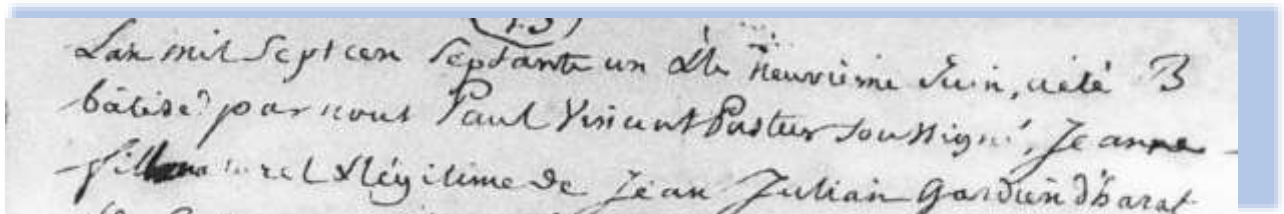 13
Lan mil Sept cen Septante un & le neuvieme Juin, aété B
bâtisé par nous Paul Vincent Pasteur soussigné, Jeanne
fille naturel & légitime de Jean Julian Gardien d'harat